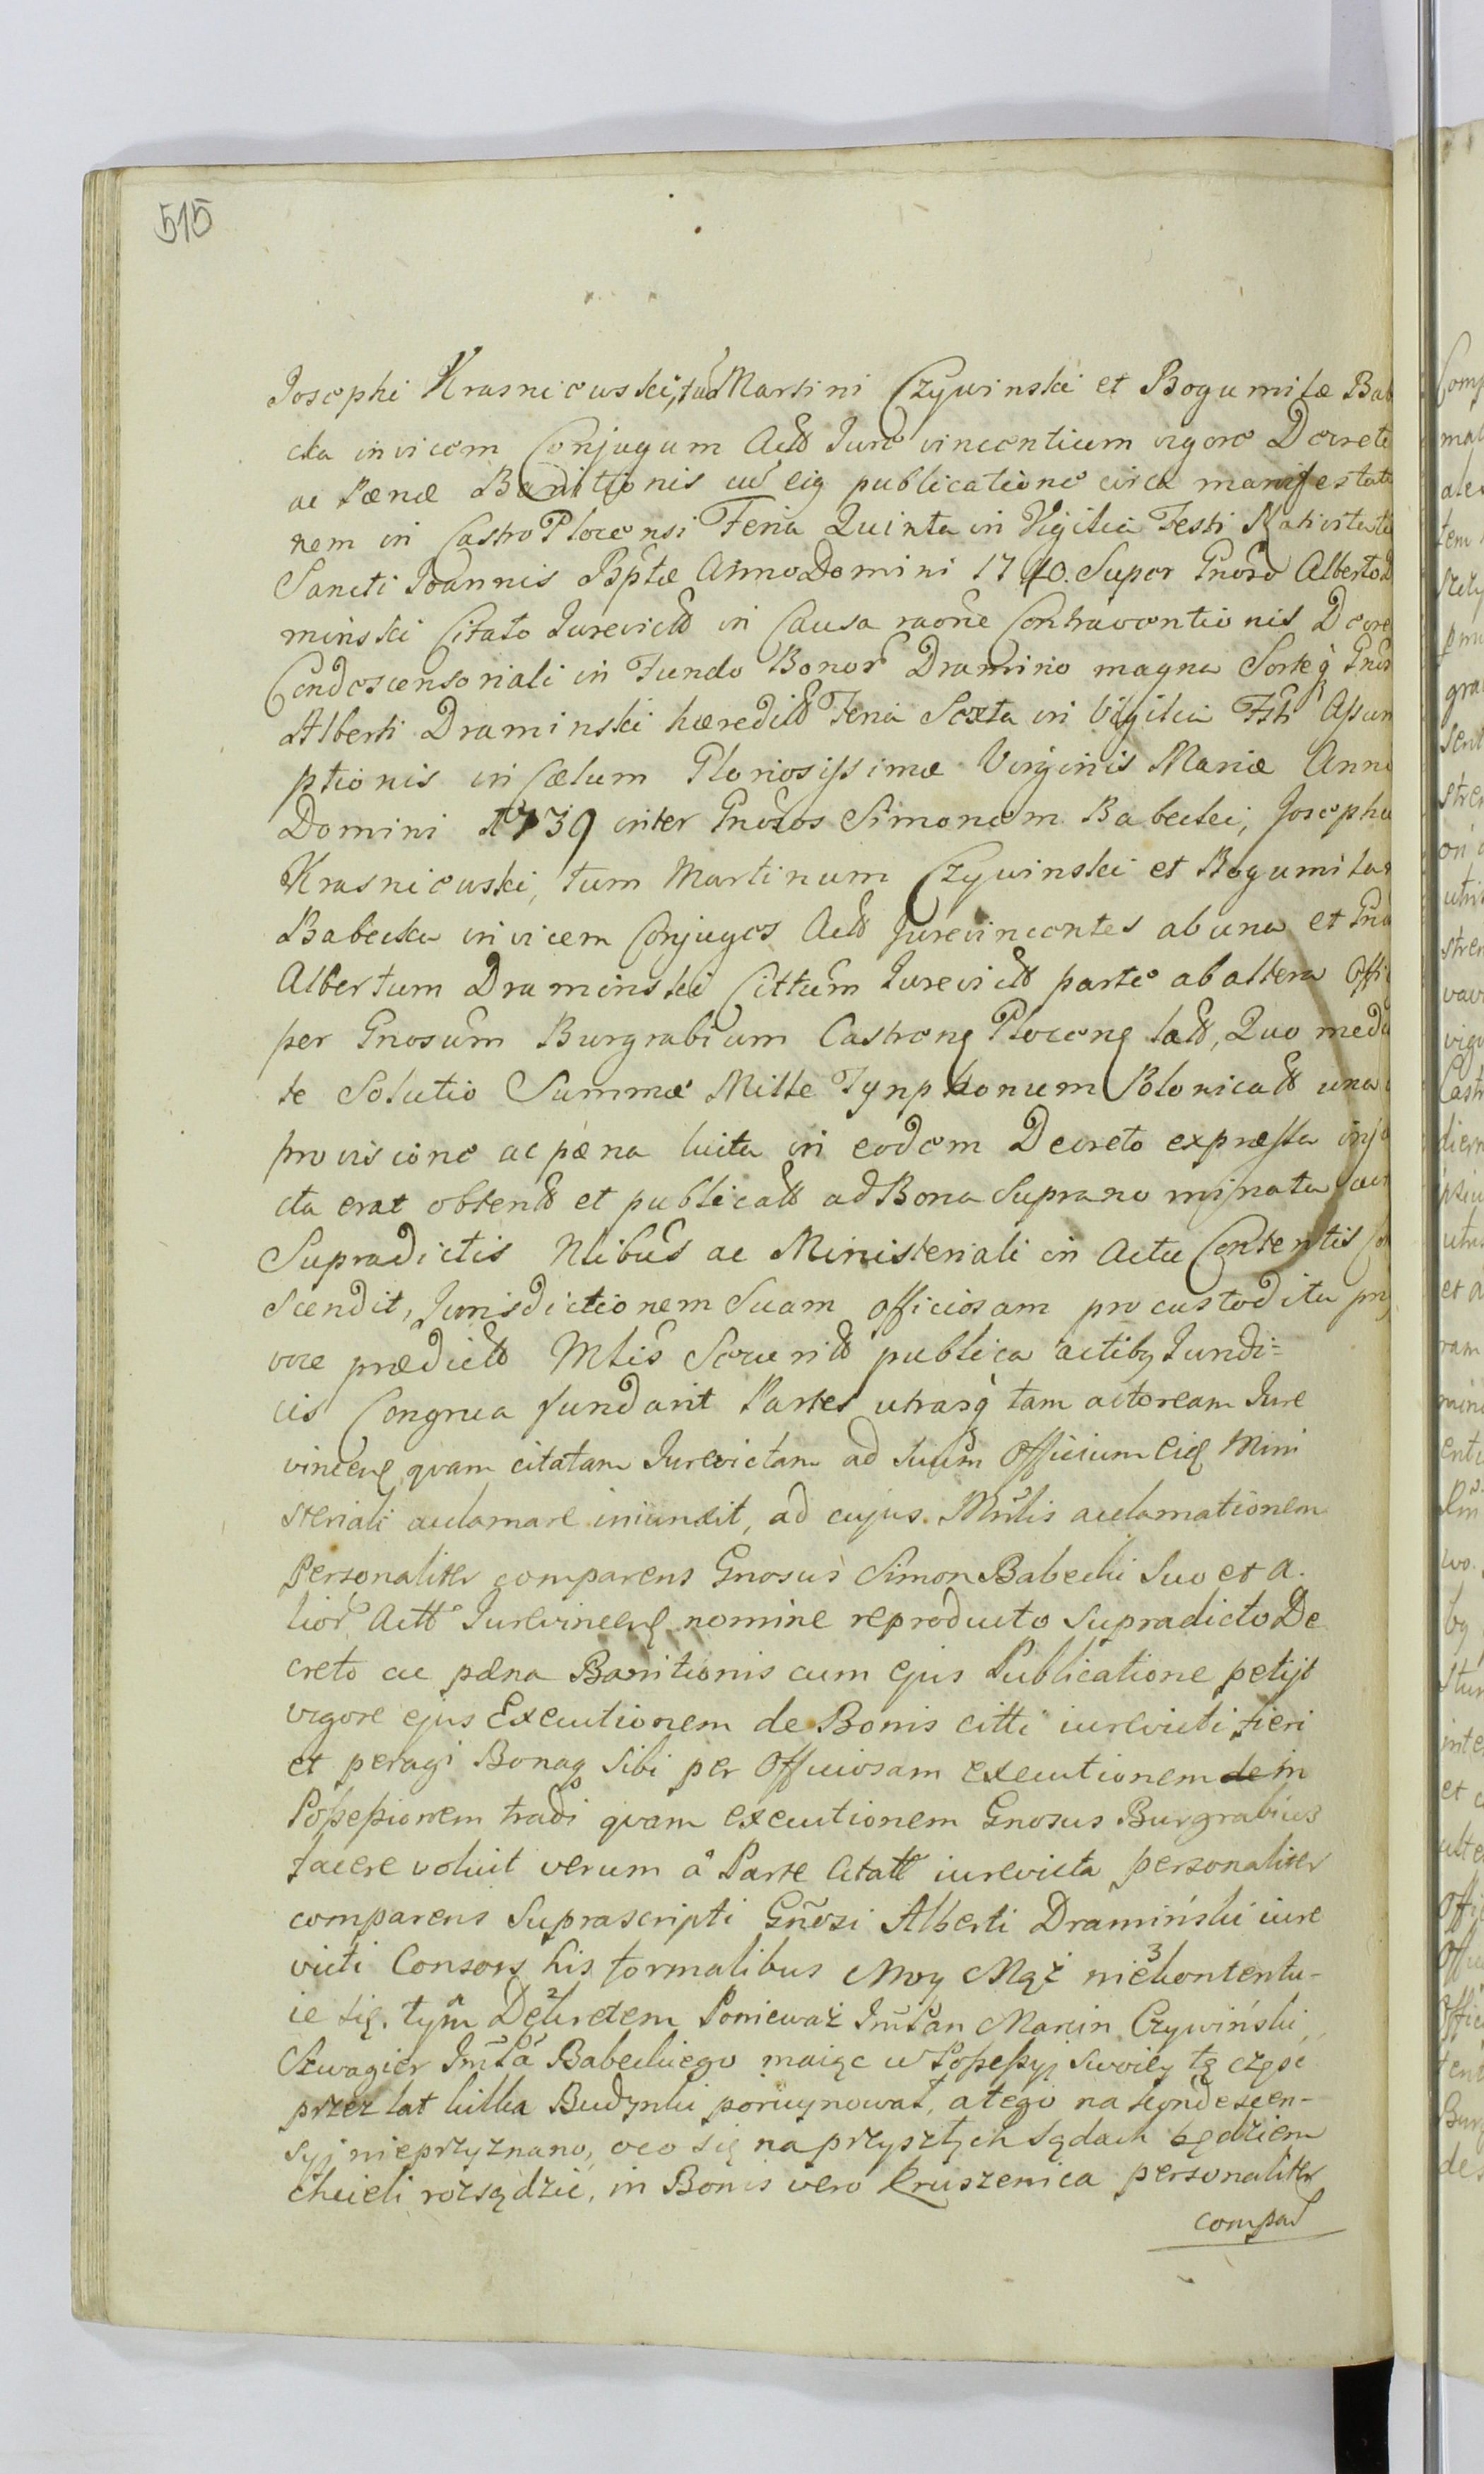 515
Josephi Krasniewski, tum Martini Czywinski et Bogumilæ Bab
cka invicem Conjugum Actt Jure vincentium vigore Decreti
ac Pænæ Banitionis cu eig publicatione circa manifestatio
nem in Castro Plocensi Feria Quinta in Vigilia Festi Nativitatis
Sancti Joannis Bptæ Anno Domini 1740. Super Gnoso Alberto D
minski Citato Jurevicto in Causa raone Contraventionis Decre
Condescensoriali in Fundo Bonor Dramino magna Sorteq Gnosi
Alberti Draminski hæredit Feria Sexta in Vigilia Fsti Assum
ptionis in Cælum Gloriosissimæ Virginis Mariæ Anni
Domini 1739 inter Gnosos Simonem Babecki, Josephu
Krasniewski, tum Martinum Czywinski et Bogumilas
Babecka invicem Conjuges Actt Jurevincentes ab una et Gno
Albertum Draminski Cittum Jurevictt parte ab altera Offi
per Gnosum Burgrabium Castrong Ploceng latt, Quo media
te Solutio Summæ Mille Tynphonum Polonicatt una
provisione ac pæna luita in eodem Decreto expressa inju
cta erat obtentt et publicatt ad Bona Supranominata cum
Supradictis Nlibus ac Ministeriali in Actu Contentis Con
scendit, Jurisdictionem Suam officiosam pro custodita pr
voce prædictt Mlis Securitt publica actibg Juridi=
cis Congrua fundavit Partes utrasq tam actoream Jure
vinceng quam citatam Jurevictam ad Suum Officium eid Mini
steriali acclamare iniunxit, ad cujus Mnlis acclamationem
Personaliter comparens Gnosus Simon Babecki Suo et a.
lior Actt Jurevinceng nomine reproducto Supradicto De
creto ac pæna Banitionis cum ejus Publicatione petijt
vigore ejus Executionem de Bonis citti iurevicti fieri
et peragi Bonaq Sibi per Officiosam executionem de in
Possessionem tradi quam executionem Gnosus Burgrabius
facere voluit verum a Parte Citatt iurevicta personaliter
comparens Suprascripti Gnosi Alberti Dramiński iure
victi Consors his formalibus Moy Mąż nie kontentu-
ie się, tym Dekretem Ponieważ Jm Pan Marcin Czywiński
Szwagier Jm Pa Babeckiego maiąc w Possessyj swoiey tę częsc
przez lat kilka Budynki poruynował, a tego na kondescen-
syj nieprzyznano, oco się na przyszłych Sądach będziem
chcieli rozsądzić, in Bonis vero Kruszenica personaliter
compad